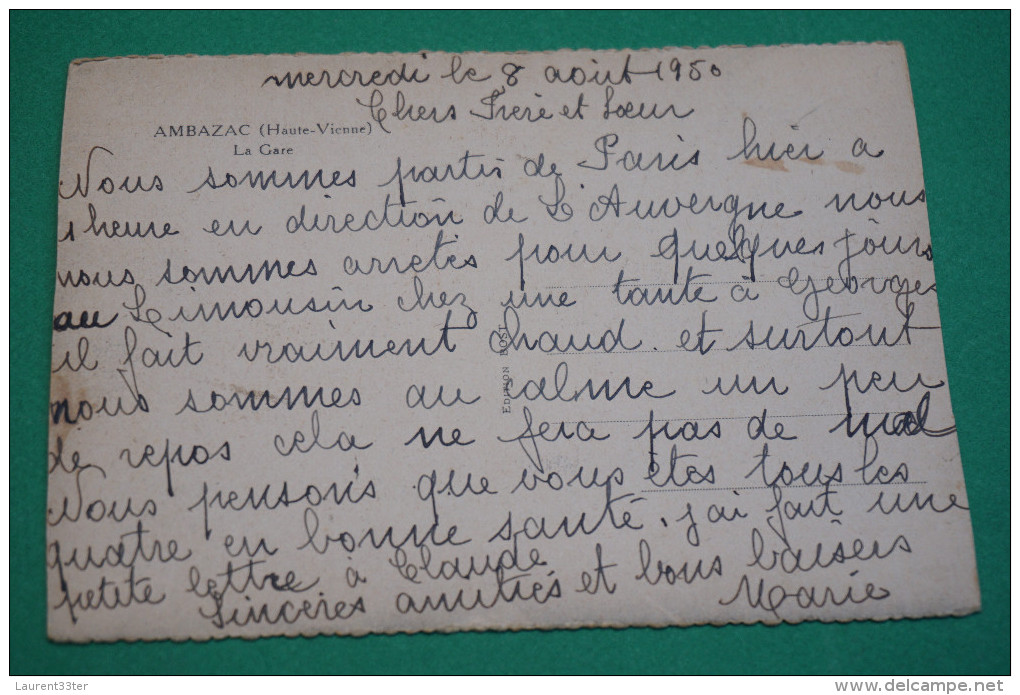 mercredi le 8 août 1950
Chers Frère et Sœur
AMBAZAC (Haute-Vienne)
La Gare
Nous sommes partis de Paris hier a
1 heure en direction de L'Auvergne nous
nous sommes arretés pour quelques jours
au Limousin chez une tante à Georges
il fait vraiment chaud. et surtout
nous sommes au calme un peu
de repos cela ne fera pas de mal
Nous pensons que vous êtes tous les
quatre en bonne santé. j'ai fait une
petite lettre à Claude
Sincères amitiés et bons baisers
Marie
EDITION POST
Laurent33ter
www.delcampe.net